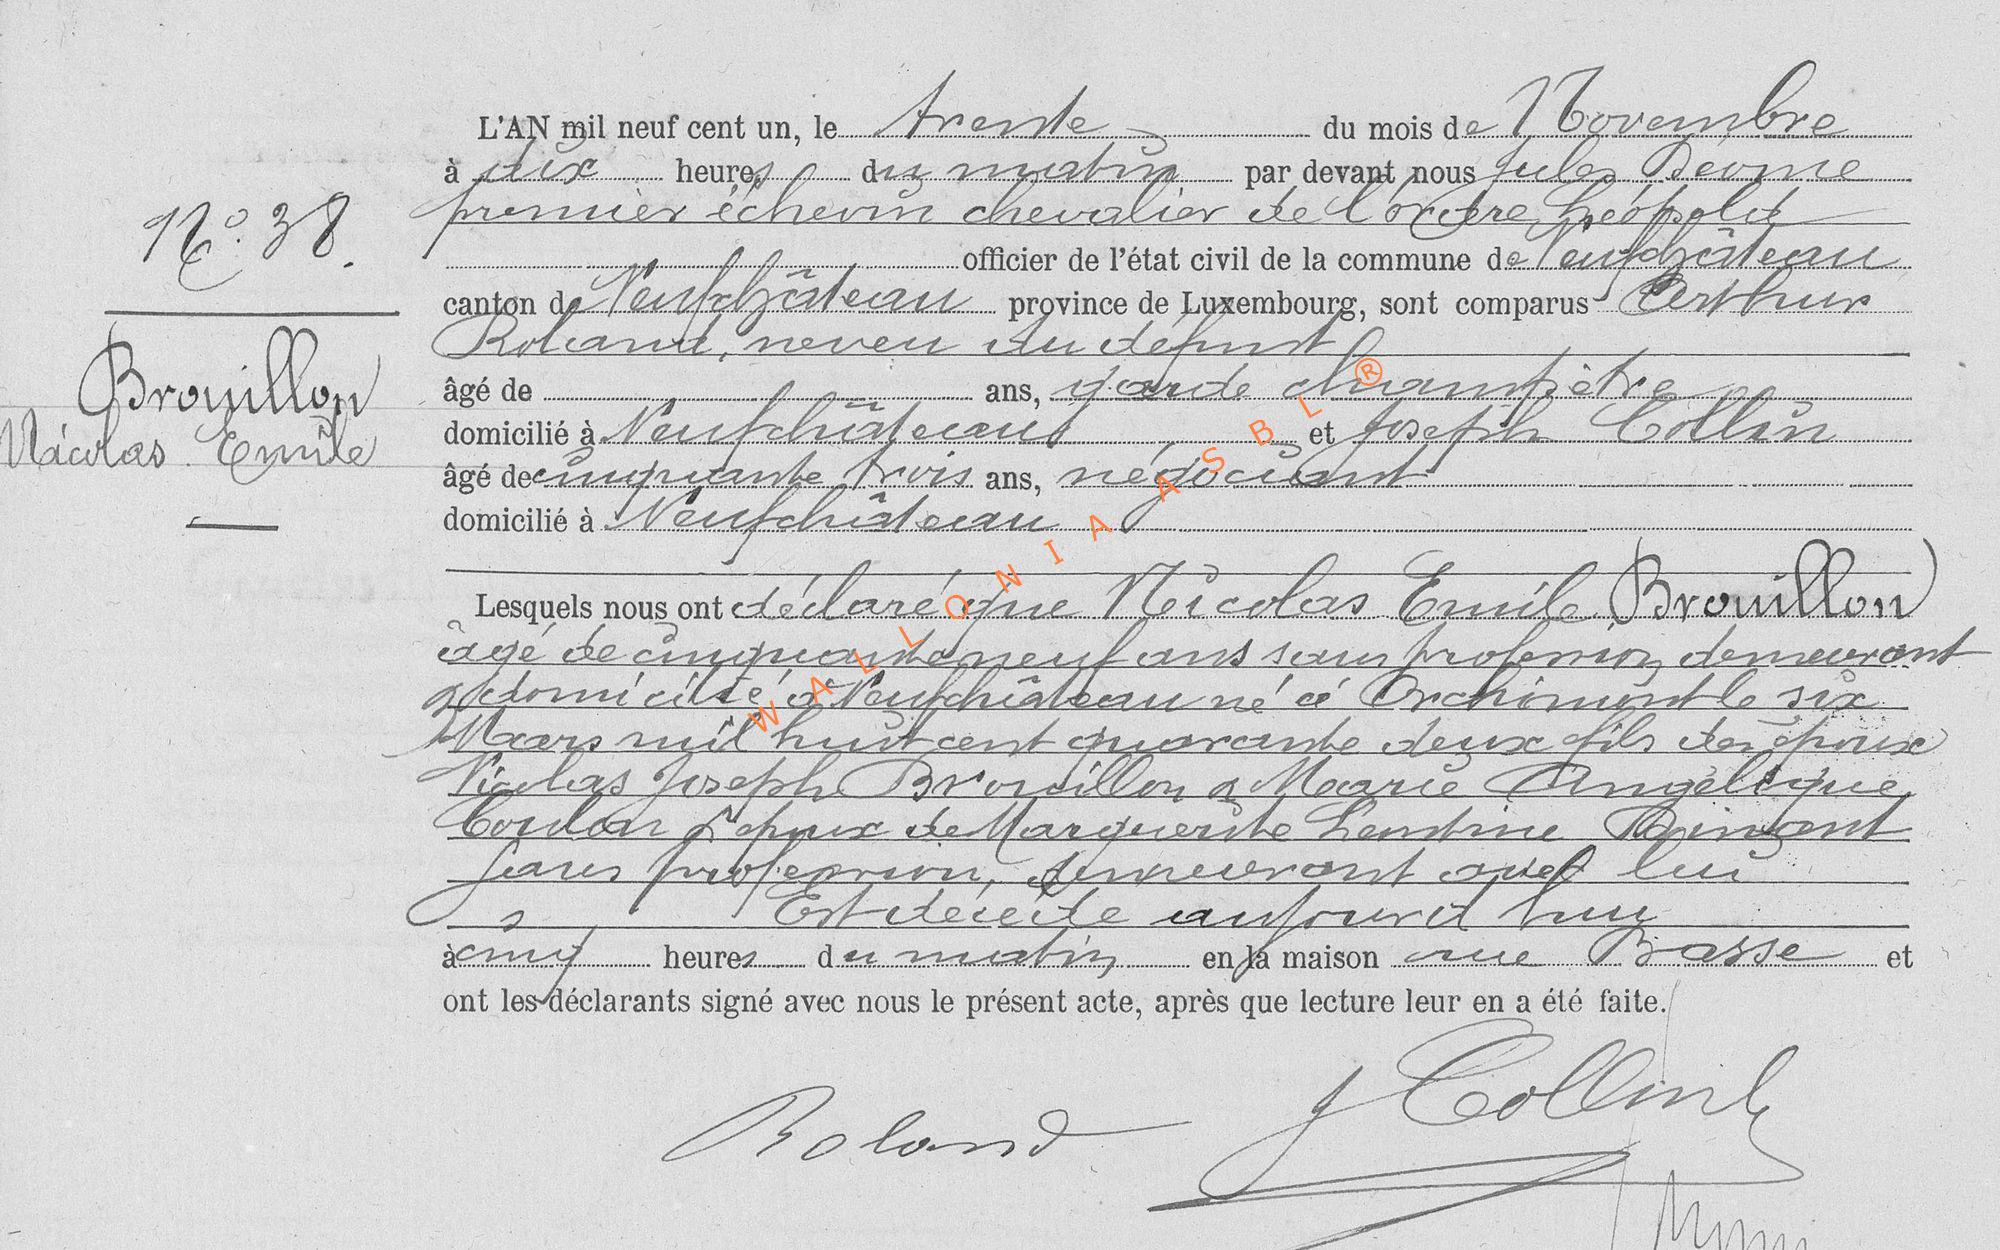 N° 38.
Brouillon
Nicolas Emile
L'AN mil neuf cent un, le trente du mois de Novembre
à dix heures du matin par devant nous Jules
premier échevin chevalier de l'ordre Léopold
officier de l'état civil de la commune de Neufchâteau
canton de Neufchâteau province de Luxembourg, sont comparus Arthur
Roland, neveu du défunt
âgé de ans, garde champêtre
domicilié à Neufchâteau et Joseph Collin
âgé de cinquante trois ans, négociant
domicilié à Neufchâteau
Lesquels nous ont déclaré que Nicolas Emile Brouillon
âgé de cinquante neuf ans sans profession, demeurant
& domicilié à Neufchâteau né à Orchimont le six
Mars mil huit cent quarante deux fils des époux
Nicolas Joseph Brouillon & Marie Angélique
époux de Marguerite
sans profession, demeurant avec lui
Est décédé aujourd'hui
à cinq heures du matin en la maison rue Basse et
ont les déclarants signé avec nous le présent acte, après que lecture leur en a été faite.
Roland
J Collin
WALLONIA ASBL ®